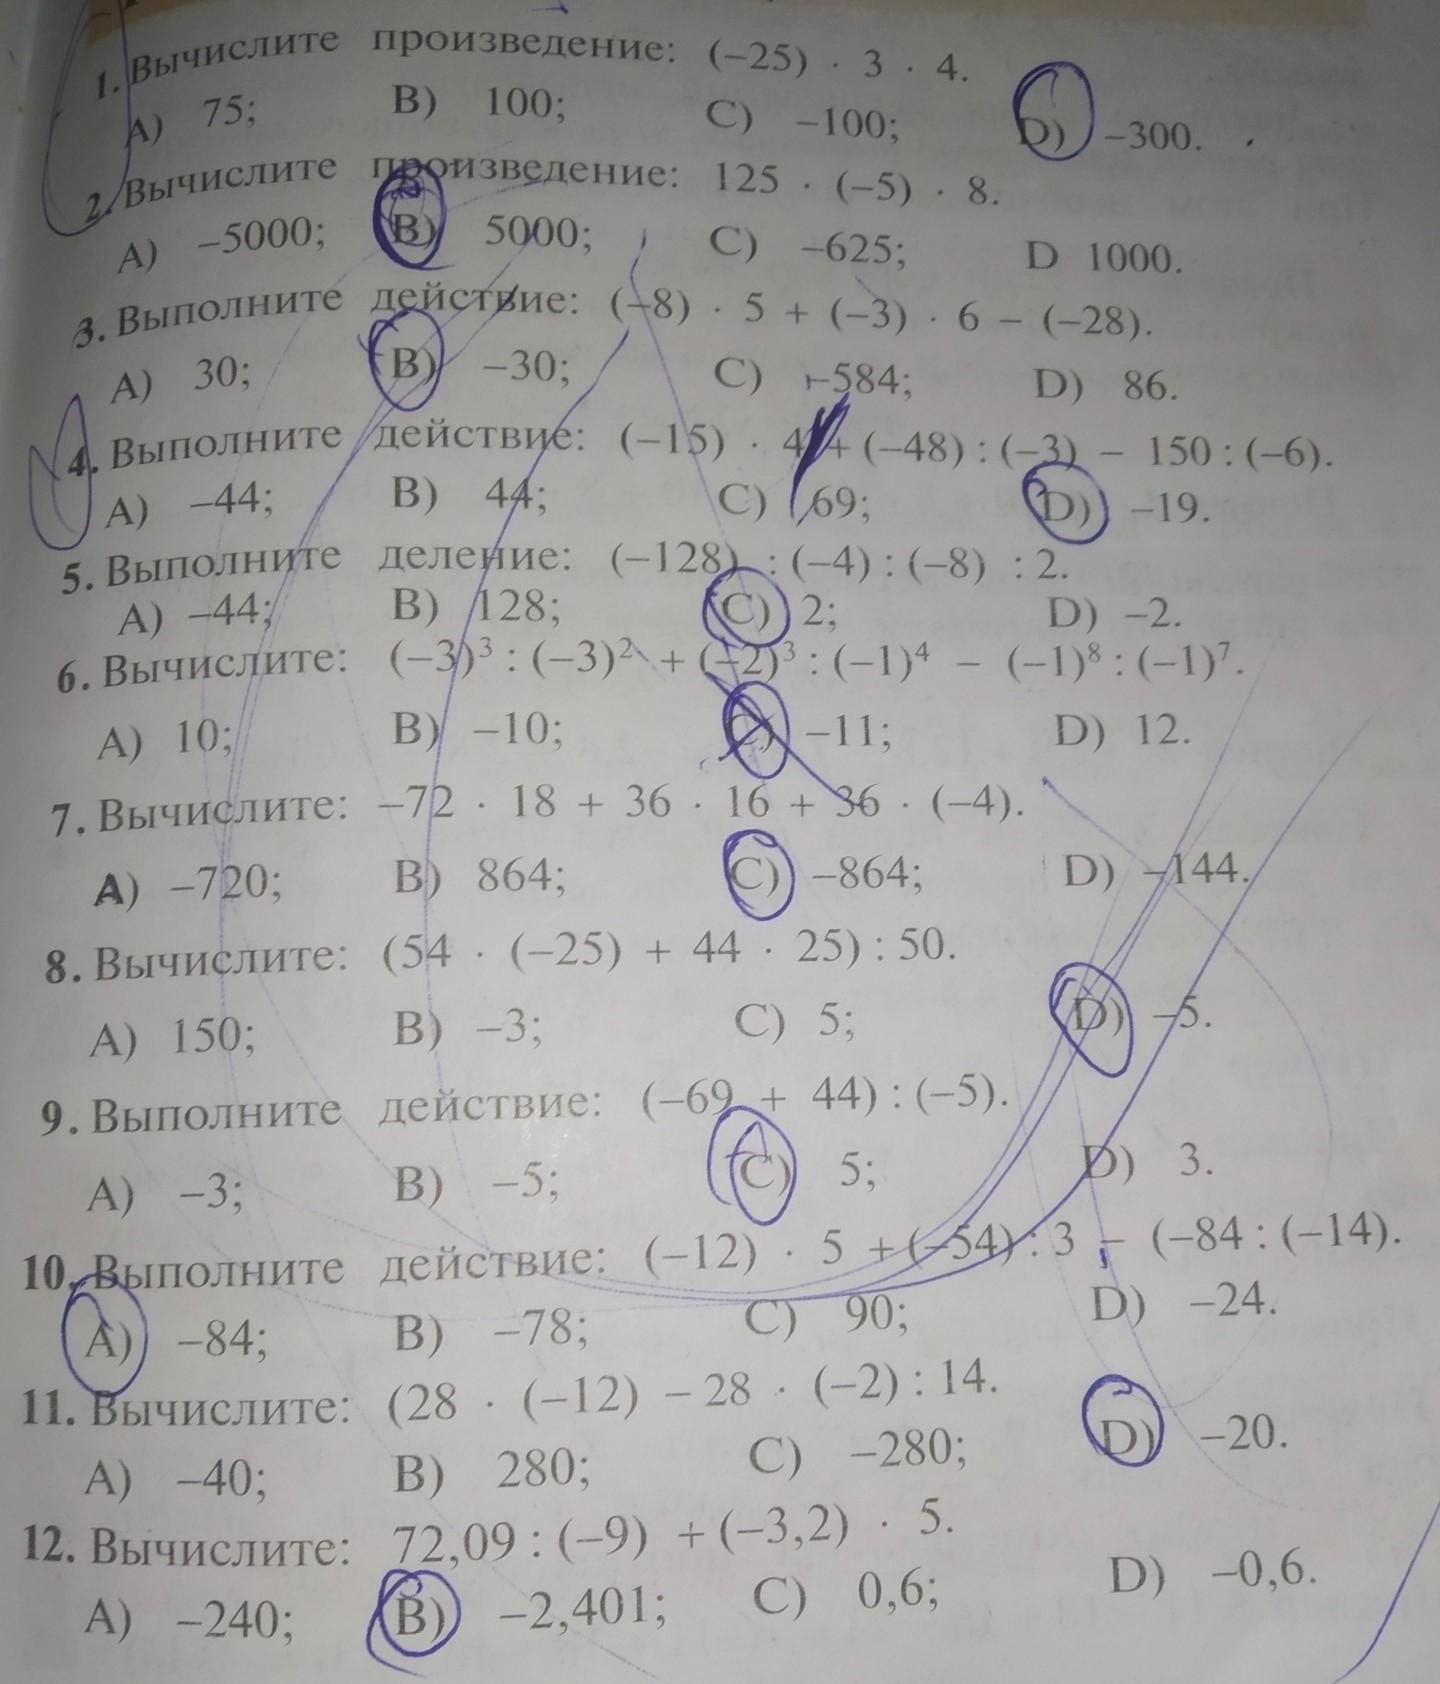 1. Вычислите произведение: (–25) · 3 · 4.
A) 75; B) 100; C) –100; D) –300.
2. Вычислите произведение: 125 · (–5) · 8.
A) –5000; B) 5000; C) –625; D 1000.
3. Выполните действие: (–8) · 5 + (–3) · 6 – (–28).
A) 30; B) –30; C) –584; D) 86.
4. Выполните действие: (–15) · 4 + (–48) : (–3) – 150 : (–6).
A) –44; B) 44; C) 69; D) –19.
5. Выполните деление: (–128) : (–4) : (–8) : 2.
A) –44; B) 128; C) 2; D) –2.
6. Вычислите: (–3)³ : (–3)² + (–2)³ : (–1)⁴ – (–1)⁸ : (–1)⁷.
A) 10; B) –10; C) –11; D) 12.
7. Вычислите: –72 · 18 + 36 · 16 + 36 · (–4).
A) –720; B) 864; C) –864; D) –144.
8. Вычислите: (54 · (–25) + 44 · 25) : 50.
A) 150; B) –3; C) 5; D) –5.
9. Выполните действие: (–69 + 44) : (–5).
A) –3; B) –5; C) 5; D) 3.
10. Выполните действие: (–12) · 5 + (–54) : 3 – (–84 : (–14).
A) –84; B) –78; C) 90; D) –24.
11. Вычислите: (28 · (–12) – 28 · (–2) : 14.
A) –40; B) 280; C) –280; D) –20.
12. Вычислите: 72,09 : (–9) + (–3,2) · 5.
A) –240; B) –2,401; C) 0,6; D) –0,6.